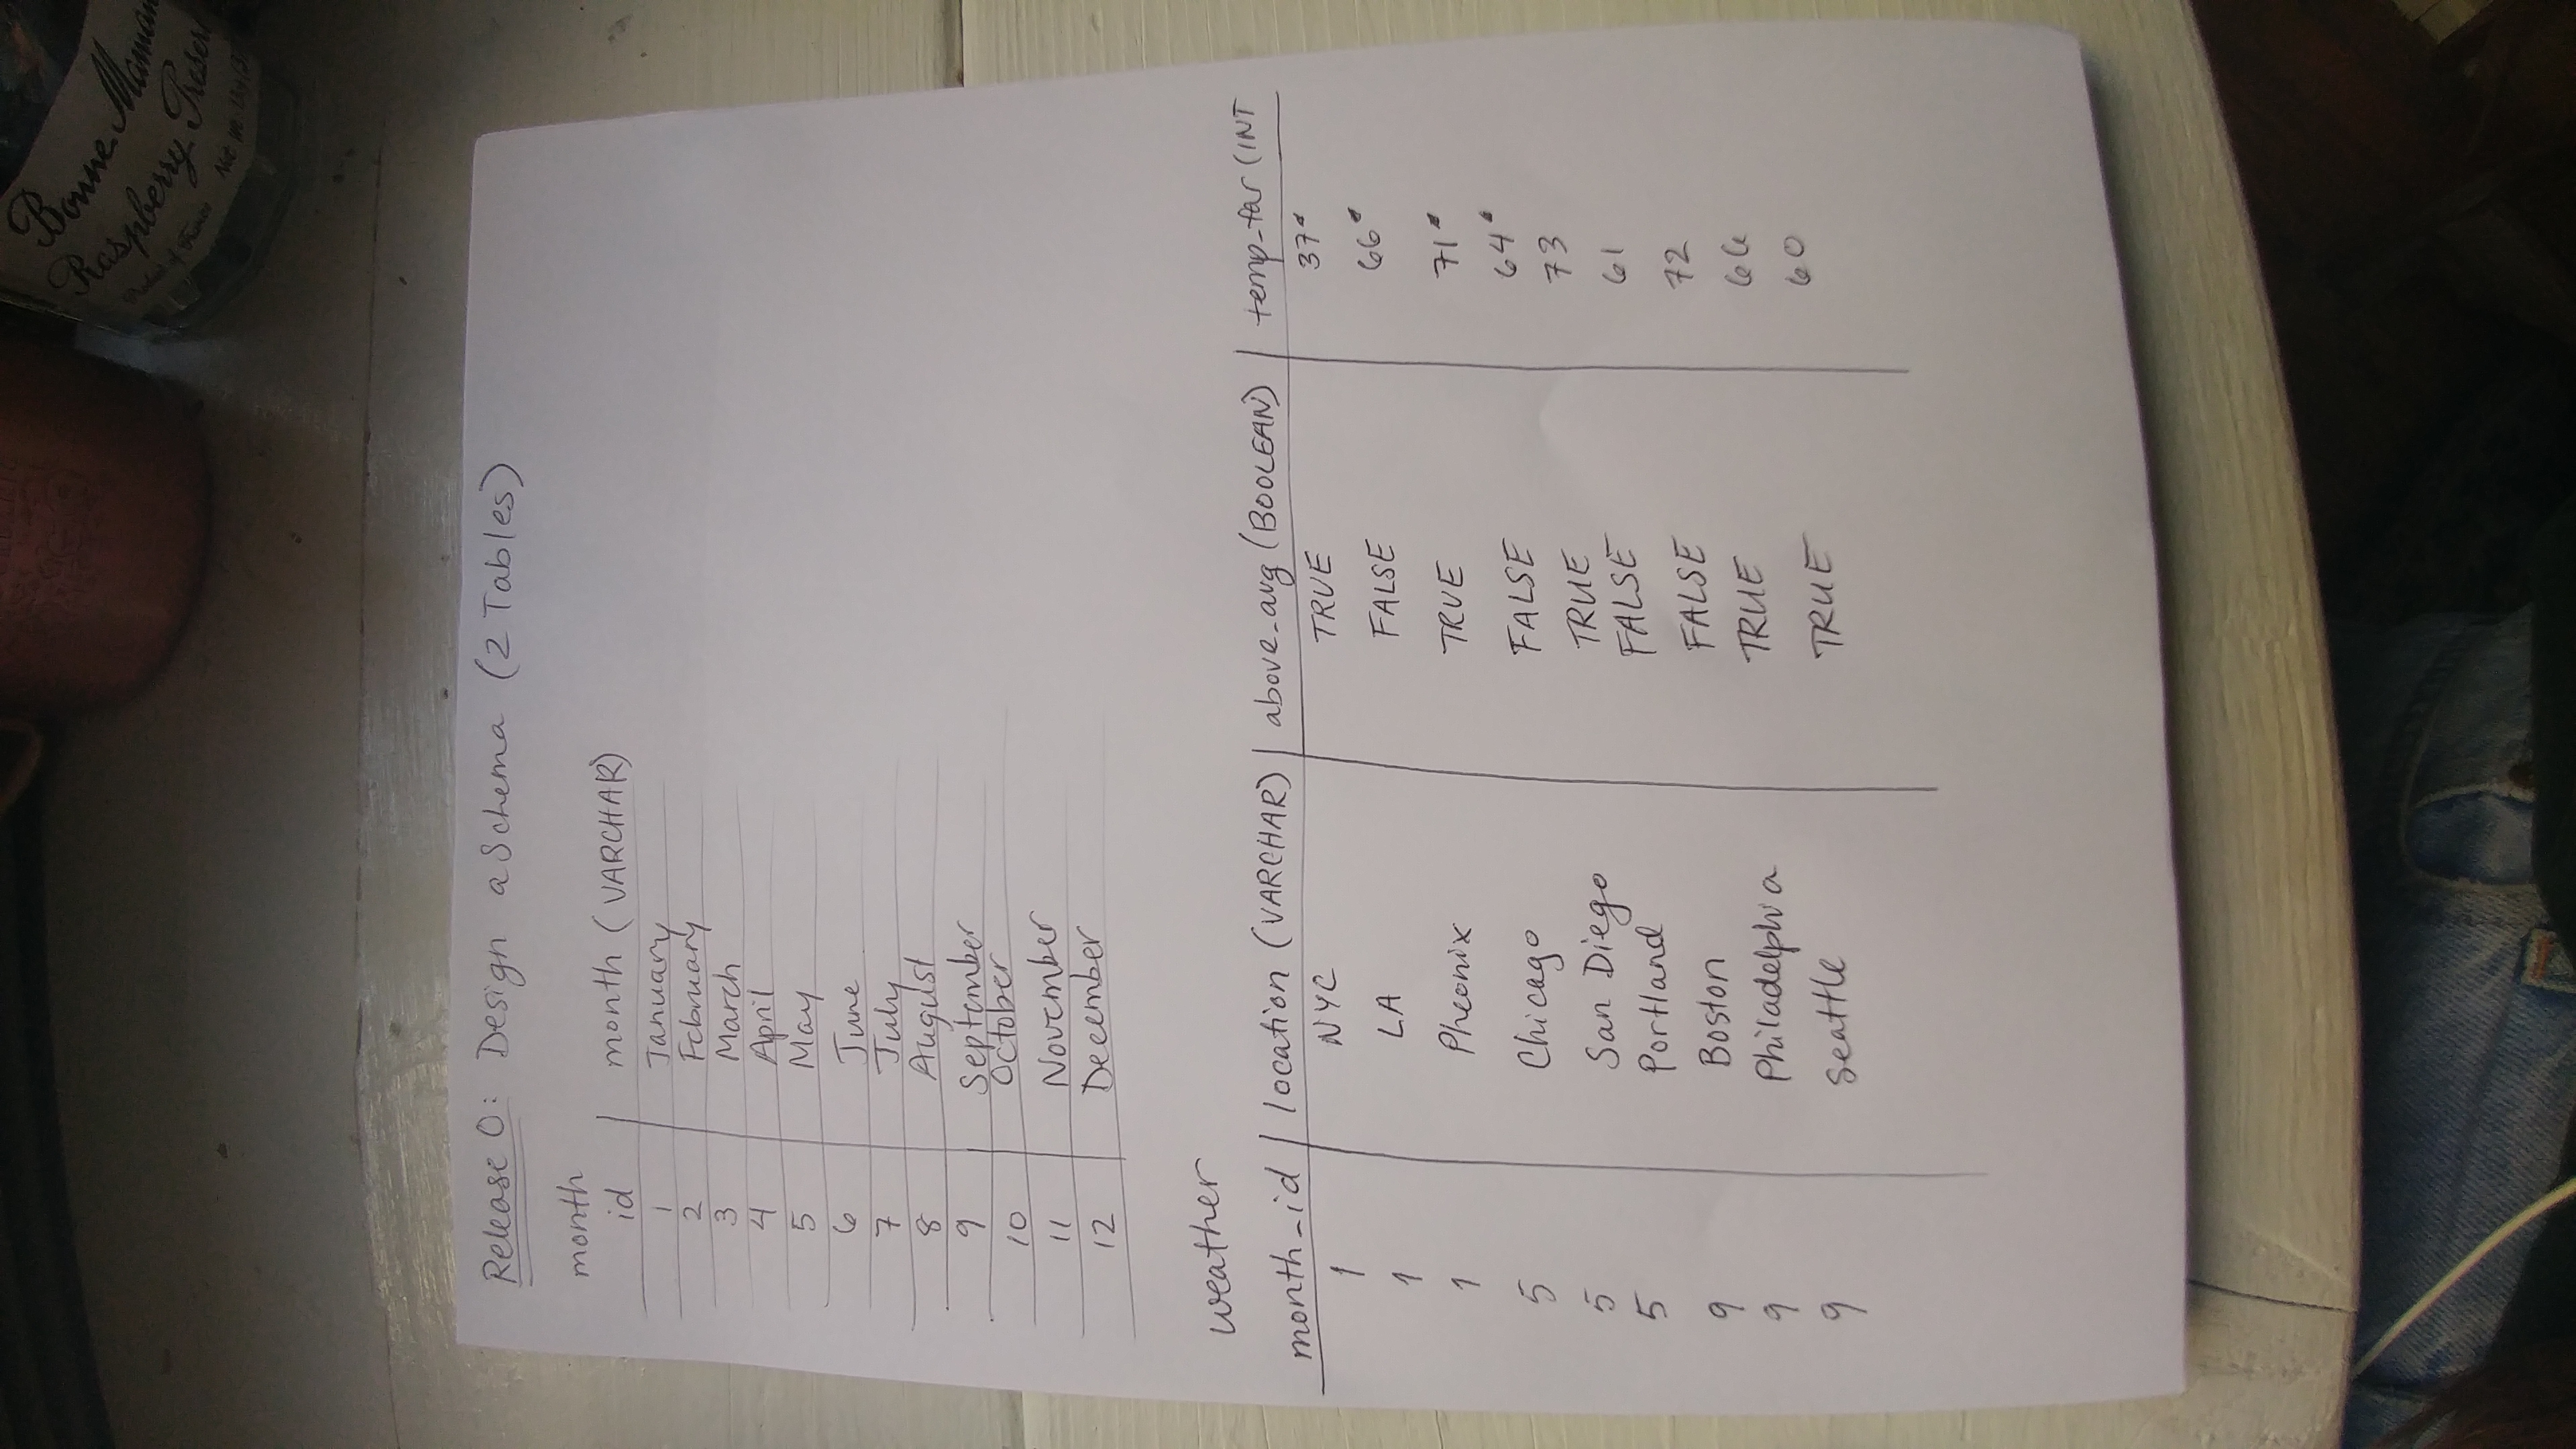 Bonne Maman
Raspberry Preser
Release 0: Design a Schema (2 Tables)
month
id month (VARCHAR)
1 January
2 February
3 March
4 April
5 May
6 June
7 July
8 August
9 September
10 October
11 November
12 December
weather
month_id location (VARCHAR) above_avg (BOOLEAN) temp_far (INT
1 NYC TRUE 37°
1 LA FALSE 66°
1 Pheonix TRUE 71°
5 Chicago FALSE 64°
5 San Diego TRUE 73
5 Portland FALSE 61
9 Boston FALSE 72
9 Philadelphia TRUE 66
9 Seattle TRUE 60